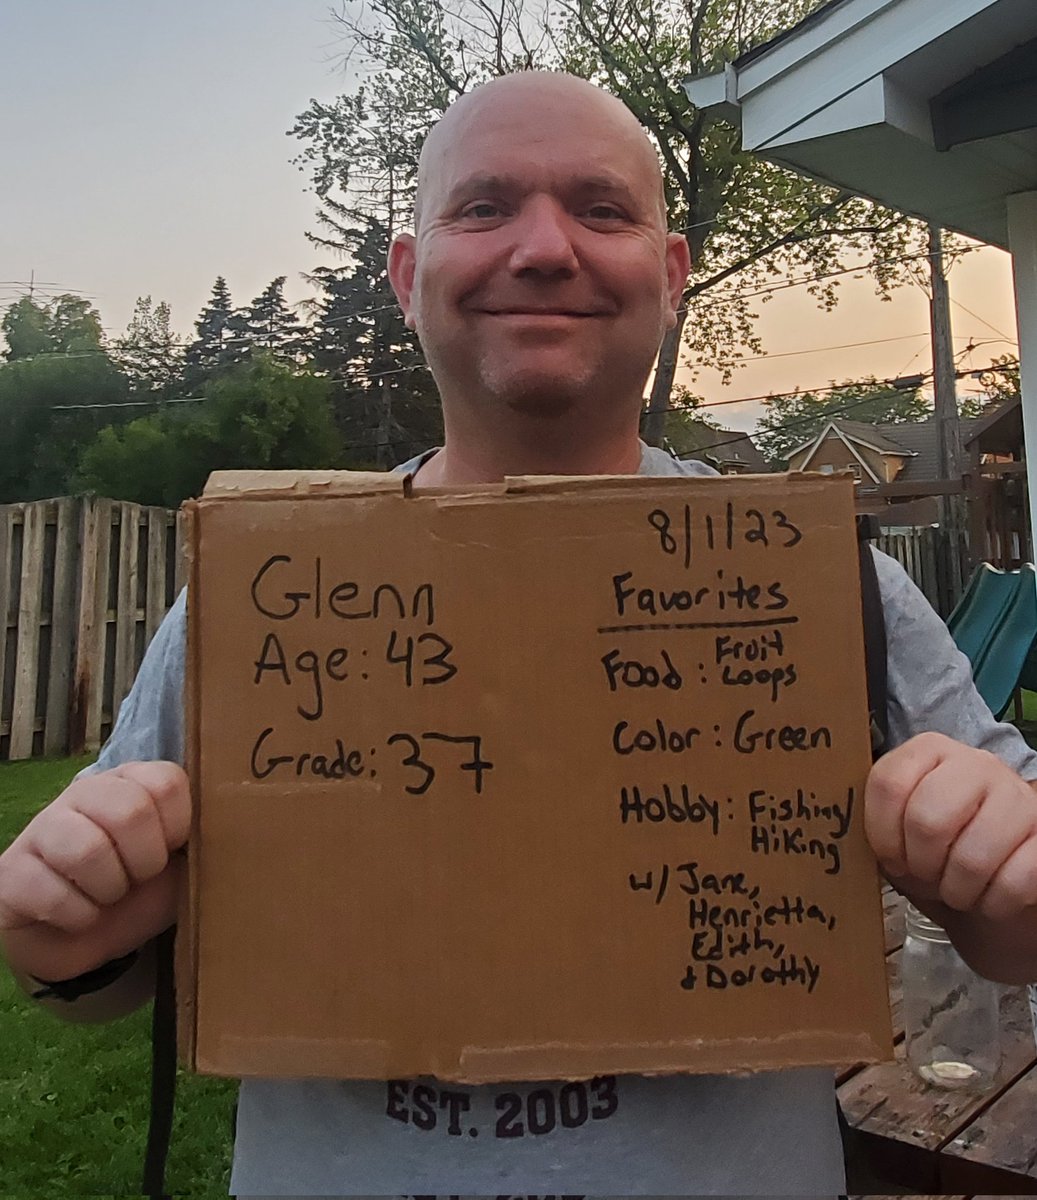 Glenn
Age: 43
Grade: 37
8/1/23
Favorites
Food: Fruit
Loops
Color: Green
Hobby: Fishing/
Hiking
w/ Jane,
Henrietta,
Edith,
+ Dorothy
EST. 2003